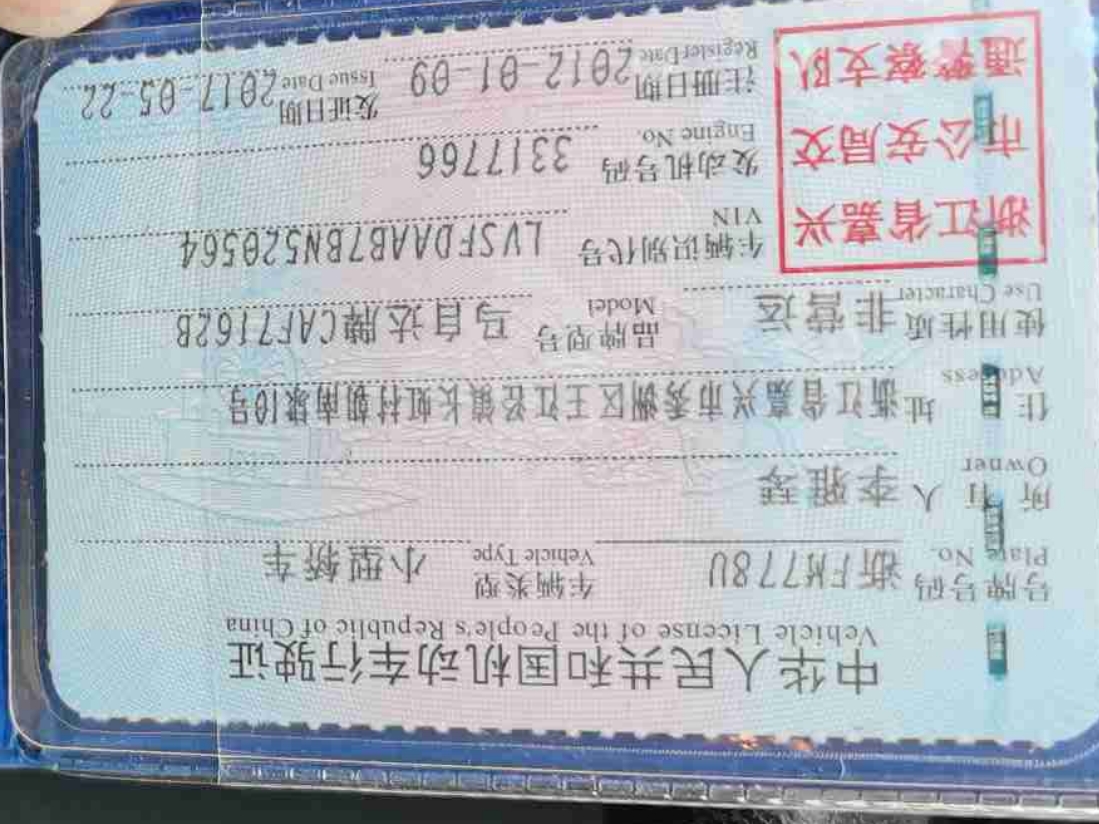 中华人民共和国机动车行驶证
Vehicle License of the People's Republic of China
号牌号码 浙FM778U 车辆类型 小型轿车
Plate No. Vehicle Type
所有人 李雅琴
Owner
住址 浙江省嘉兴市秀洲区王江泾镇长虹村朝南埭10号
Address
使用性质 非营运 品牌型号 马自达牌CAF7162B
Use Character Model
浙江省嘉兴
市公安局交
通警察支队
车辆识别代号 LVSFDAAB7BN520564
VIN
发动机号码 3317766
Engine No.
注册日期 2012-01-09 发证日期 2017-05-22
Register Date Issue Date